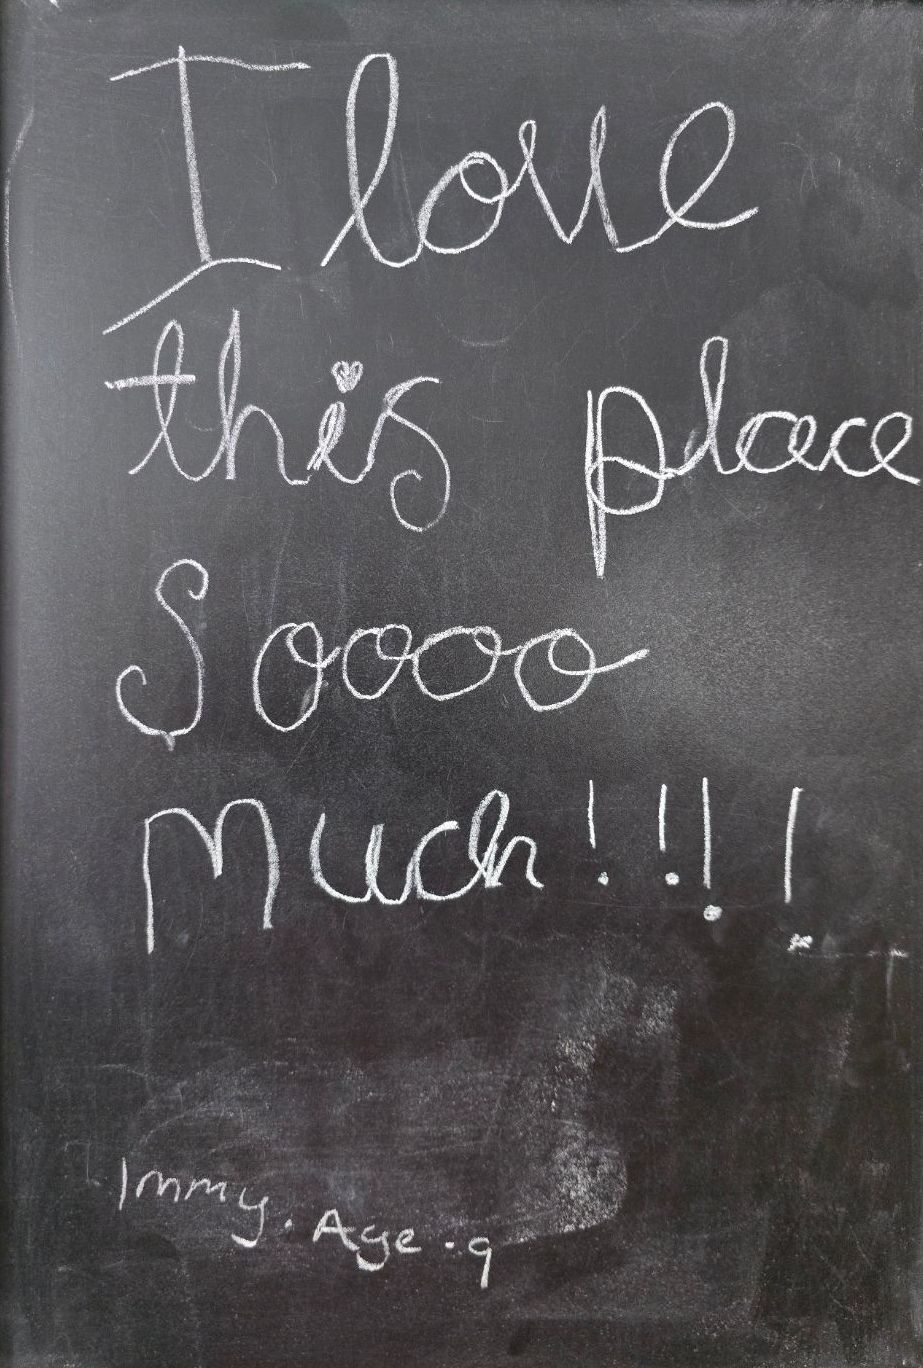 I love
this place
Soooo
Much!!!!
Immy. Age. 9